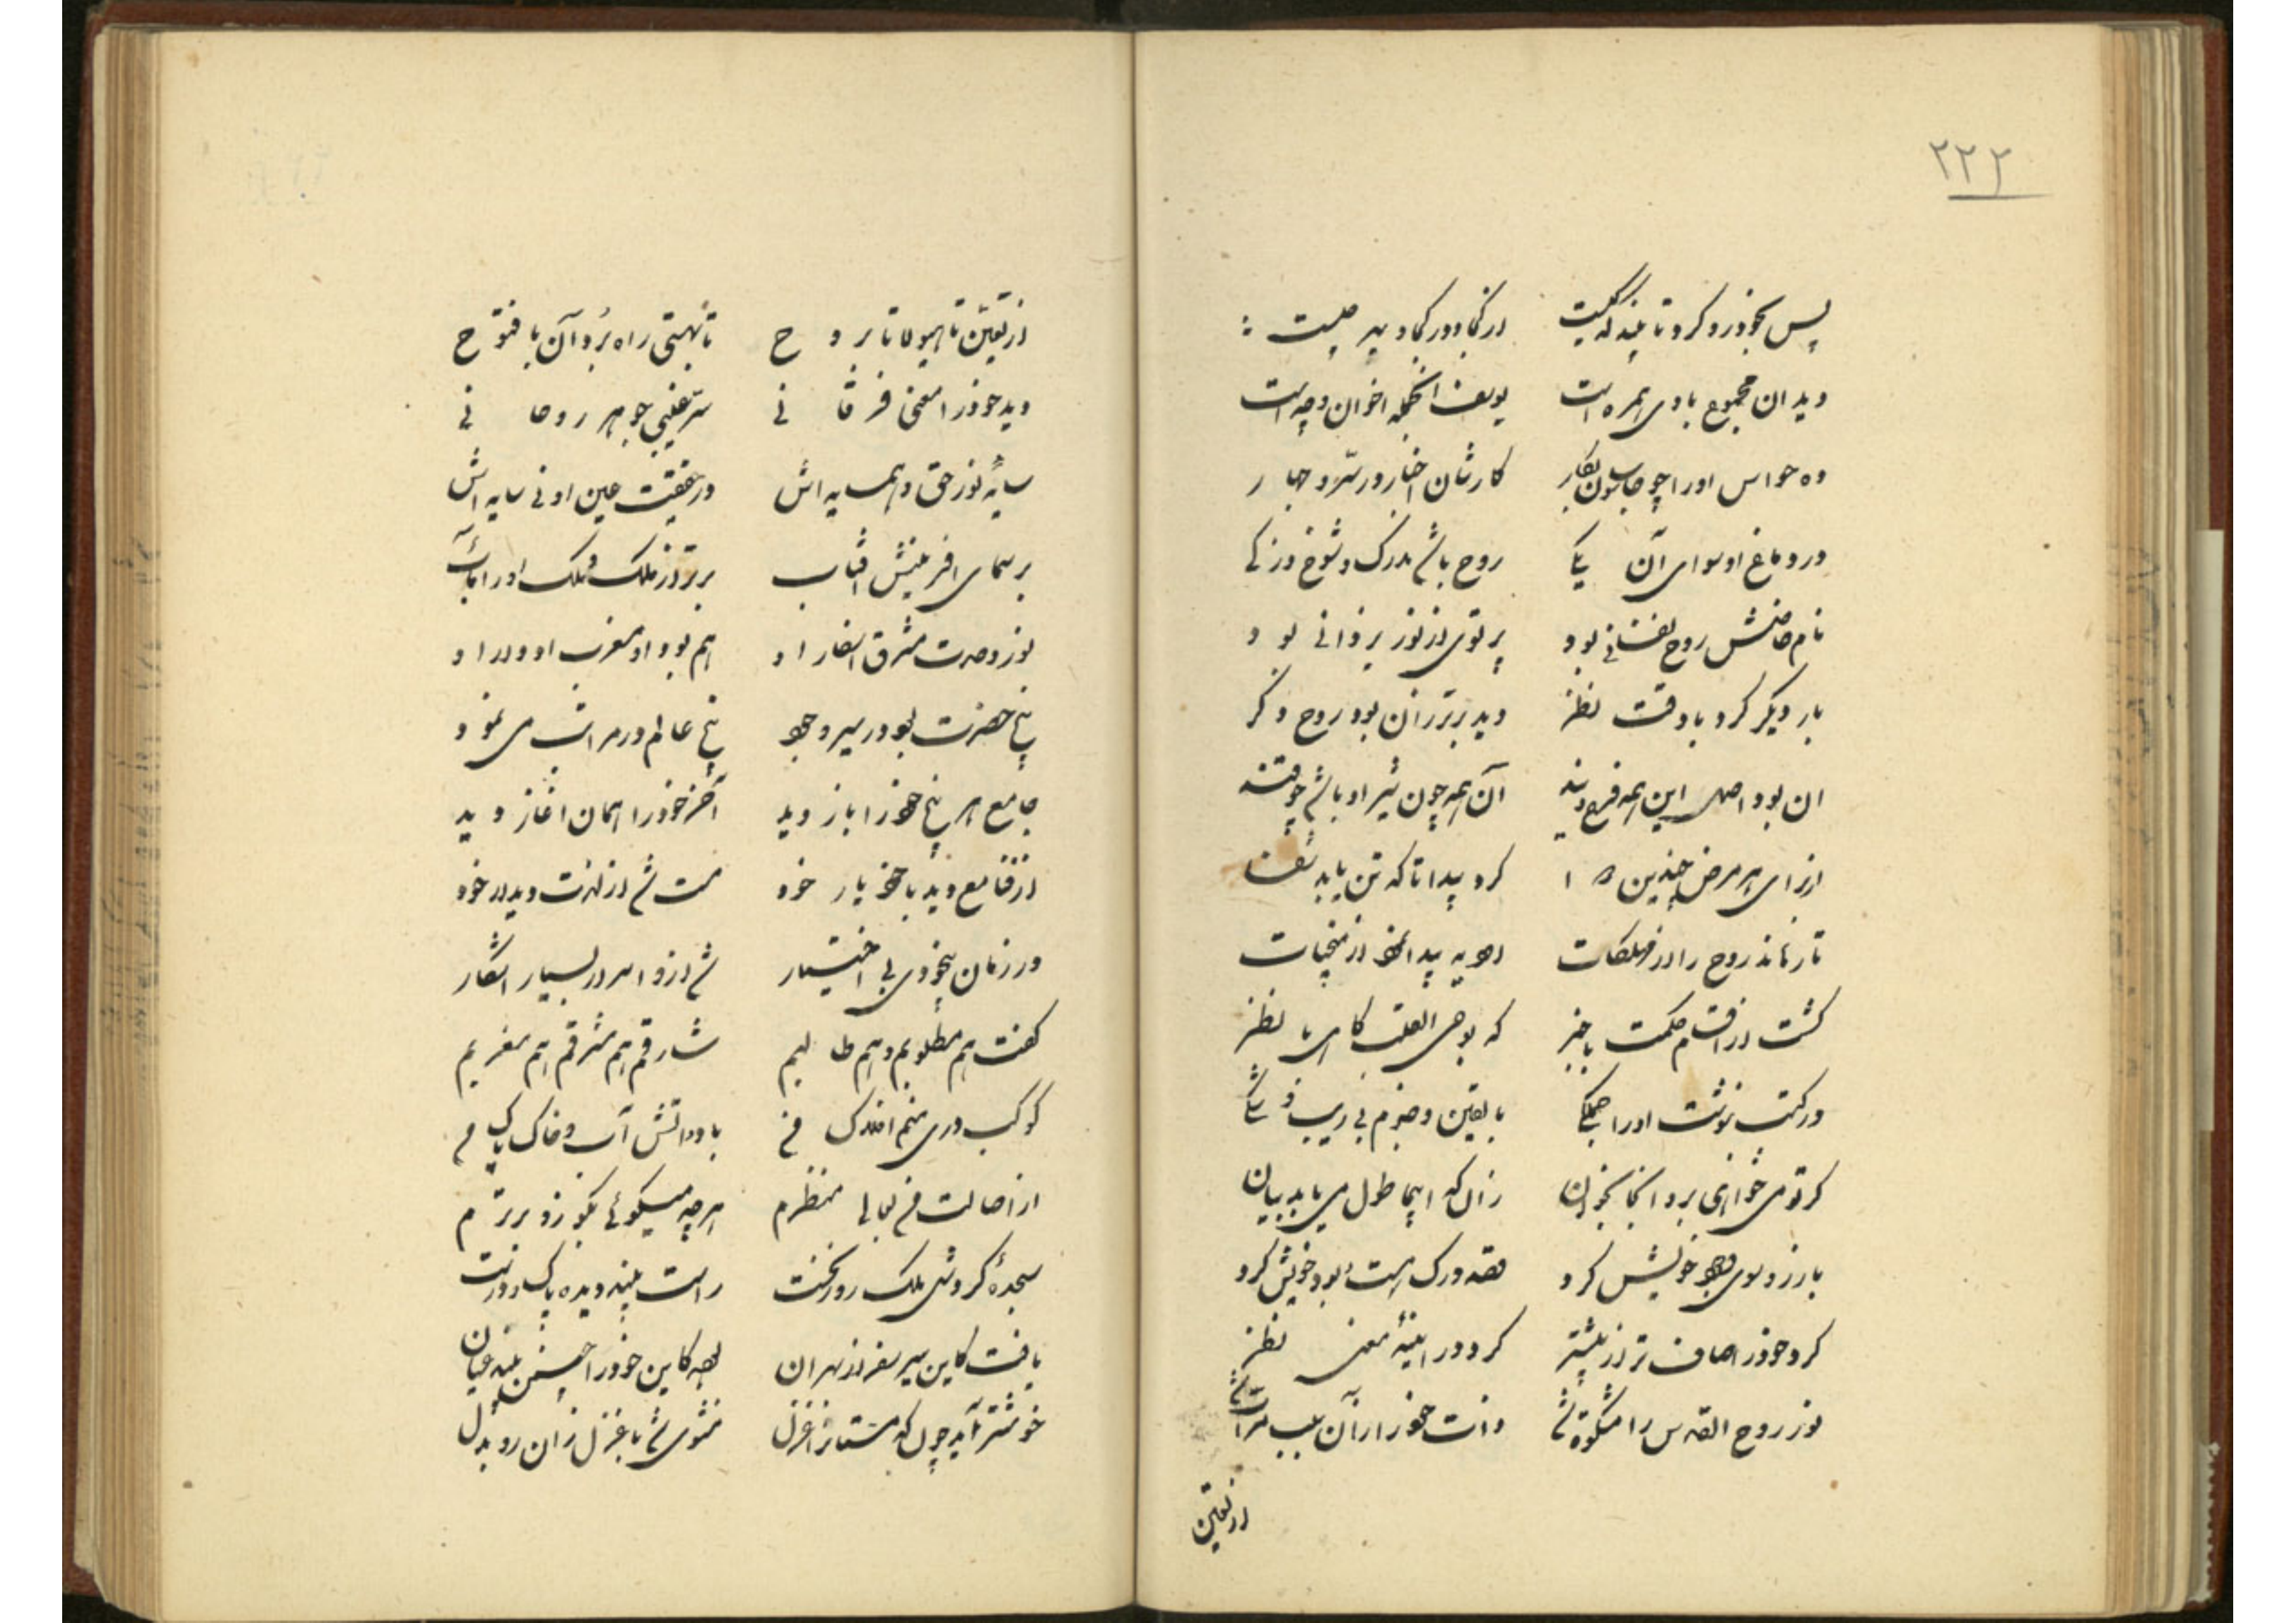 ۲۲۲
پس بخود رو کرد تا بیند که کیست از کجا و در کجا و بهر چیست
دید ان مجموع با وی همره است یوسف اندر جمله اخوان و چه است
ده حواس او را چو جاسوسان بکار کارشان اخبار در سر و جهار
در دماغ او سوای آن یکی روح باشد مدرک و شوخ و زکی
نام خاصش روح نفسانی بود پرتوی از نور یزدانی بود
بار دیگر کرد با دقت نظر دید برتر زان بود روح دکر
ان بود اصل این همه فرع ویند آن همه چون شیر او باشد چو قند
از برای هر مرض چندین دوا کرد پیدا تا که تن یابد شفا
تا رهاند روح را از مهلکات ادویه پیدا نمود از منجیات
کشت از اقسام حکمت با خبر که بوحی القلب کاهی با نظر
در کتب بنوشت او را جملکی با یقین و جزم بی ریب و شکی
کر تو می خواهی برو انجا بخوان زان که اینجا طول می یابد بیان
باز رو سوی وجود خویش کرد قصد درک هست و بود خویش کرد
کرد خود را صاف تر از پیشتر کرد در ایینهٔ معنی نظر
نور روح القدس را مشکوة شد ذات خود را زآن سبب مرآت شد
از تعین
از تعین تا هیولا تا بروح تا بهستی راه برد آن با فتوح
دید خود را معنی فرقانی سر غیبی جوهر روحانی
سایهٔ نور حق و همسایه اش در حقیقت عین او نی سایه اش
بر سمای افرینش افتاب برتر از ملک و فلک او را مآب
نور وحدت مشرق اسفار او هم بود او مغرب ادوار او
پنج حضرت بود در سیر وجود پنج عالم در مراتب می نمود
جامع هر پنج خود را باز دید آخر خود را همان اغاز دید
از قفا مع دید با خود یار خود مست شد از لذت دیدار خود
در زمان بیخودی بی اختیار شد از او اسرار بسیار اشکار
کفت هم مطلوبم و هم طالبم شارقم هم مشرقم هم مغربم
کوکب دری منم افلاک من باد و اتش آب و خاک پاک من
از اصالت من بعالی منظرم هرچه میکوئی بکو زو برترم
سجدهٔ کرد و شد ملک رو بر نخست راست بیند دیده پاک و درست
یافت کاین سیر سفر از بهر ان بود کاین خود را چنین بیند عیان
خوشتر آید چون که مستانرا غزل مثنوی شد با غزل زان رو بدل